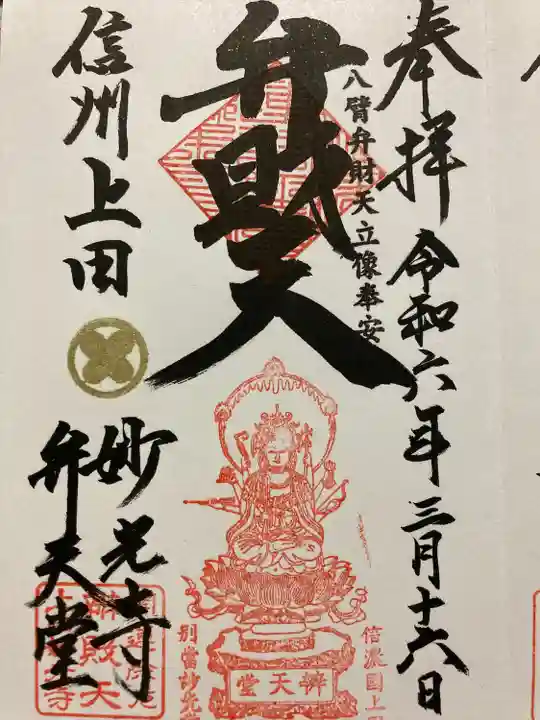 奉拝 令和六年三月十六日
八臂弁財天立像奉安
弁財天
信州上田
妙光寺
弁天堂
辨天堂
信濃国上田
別當妙光寺
辨財天